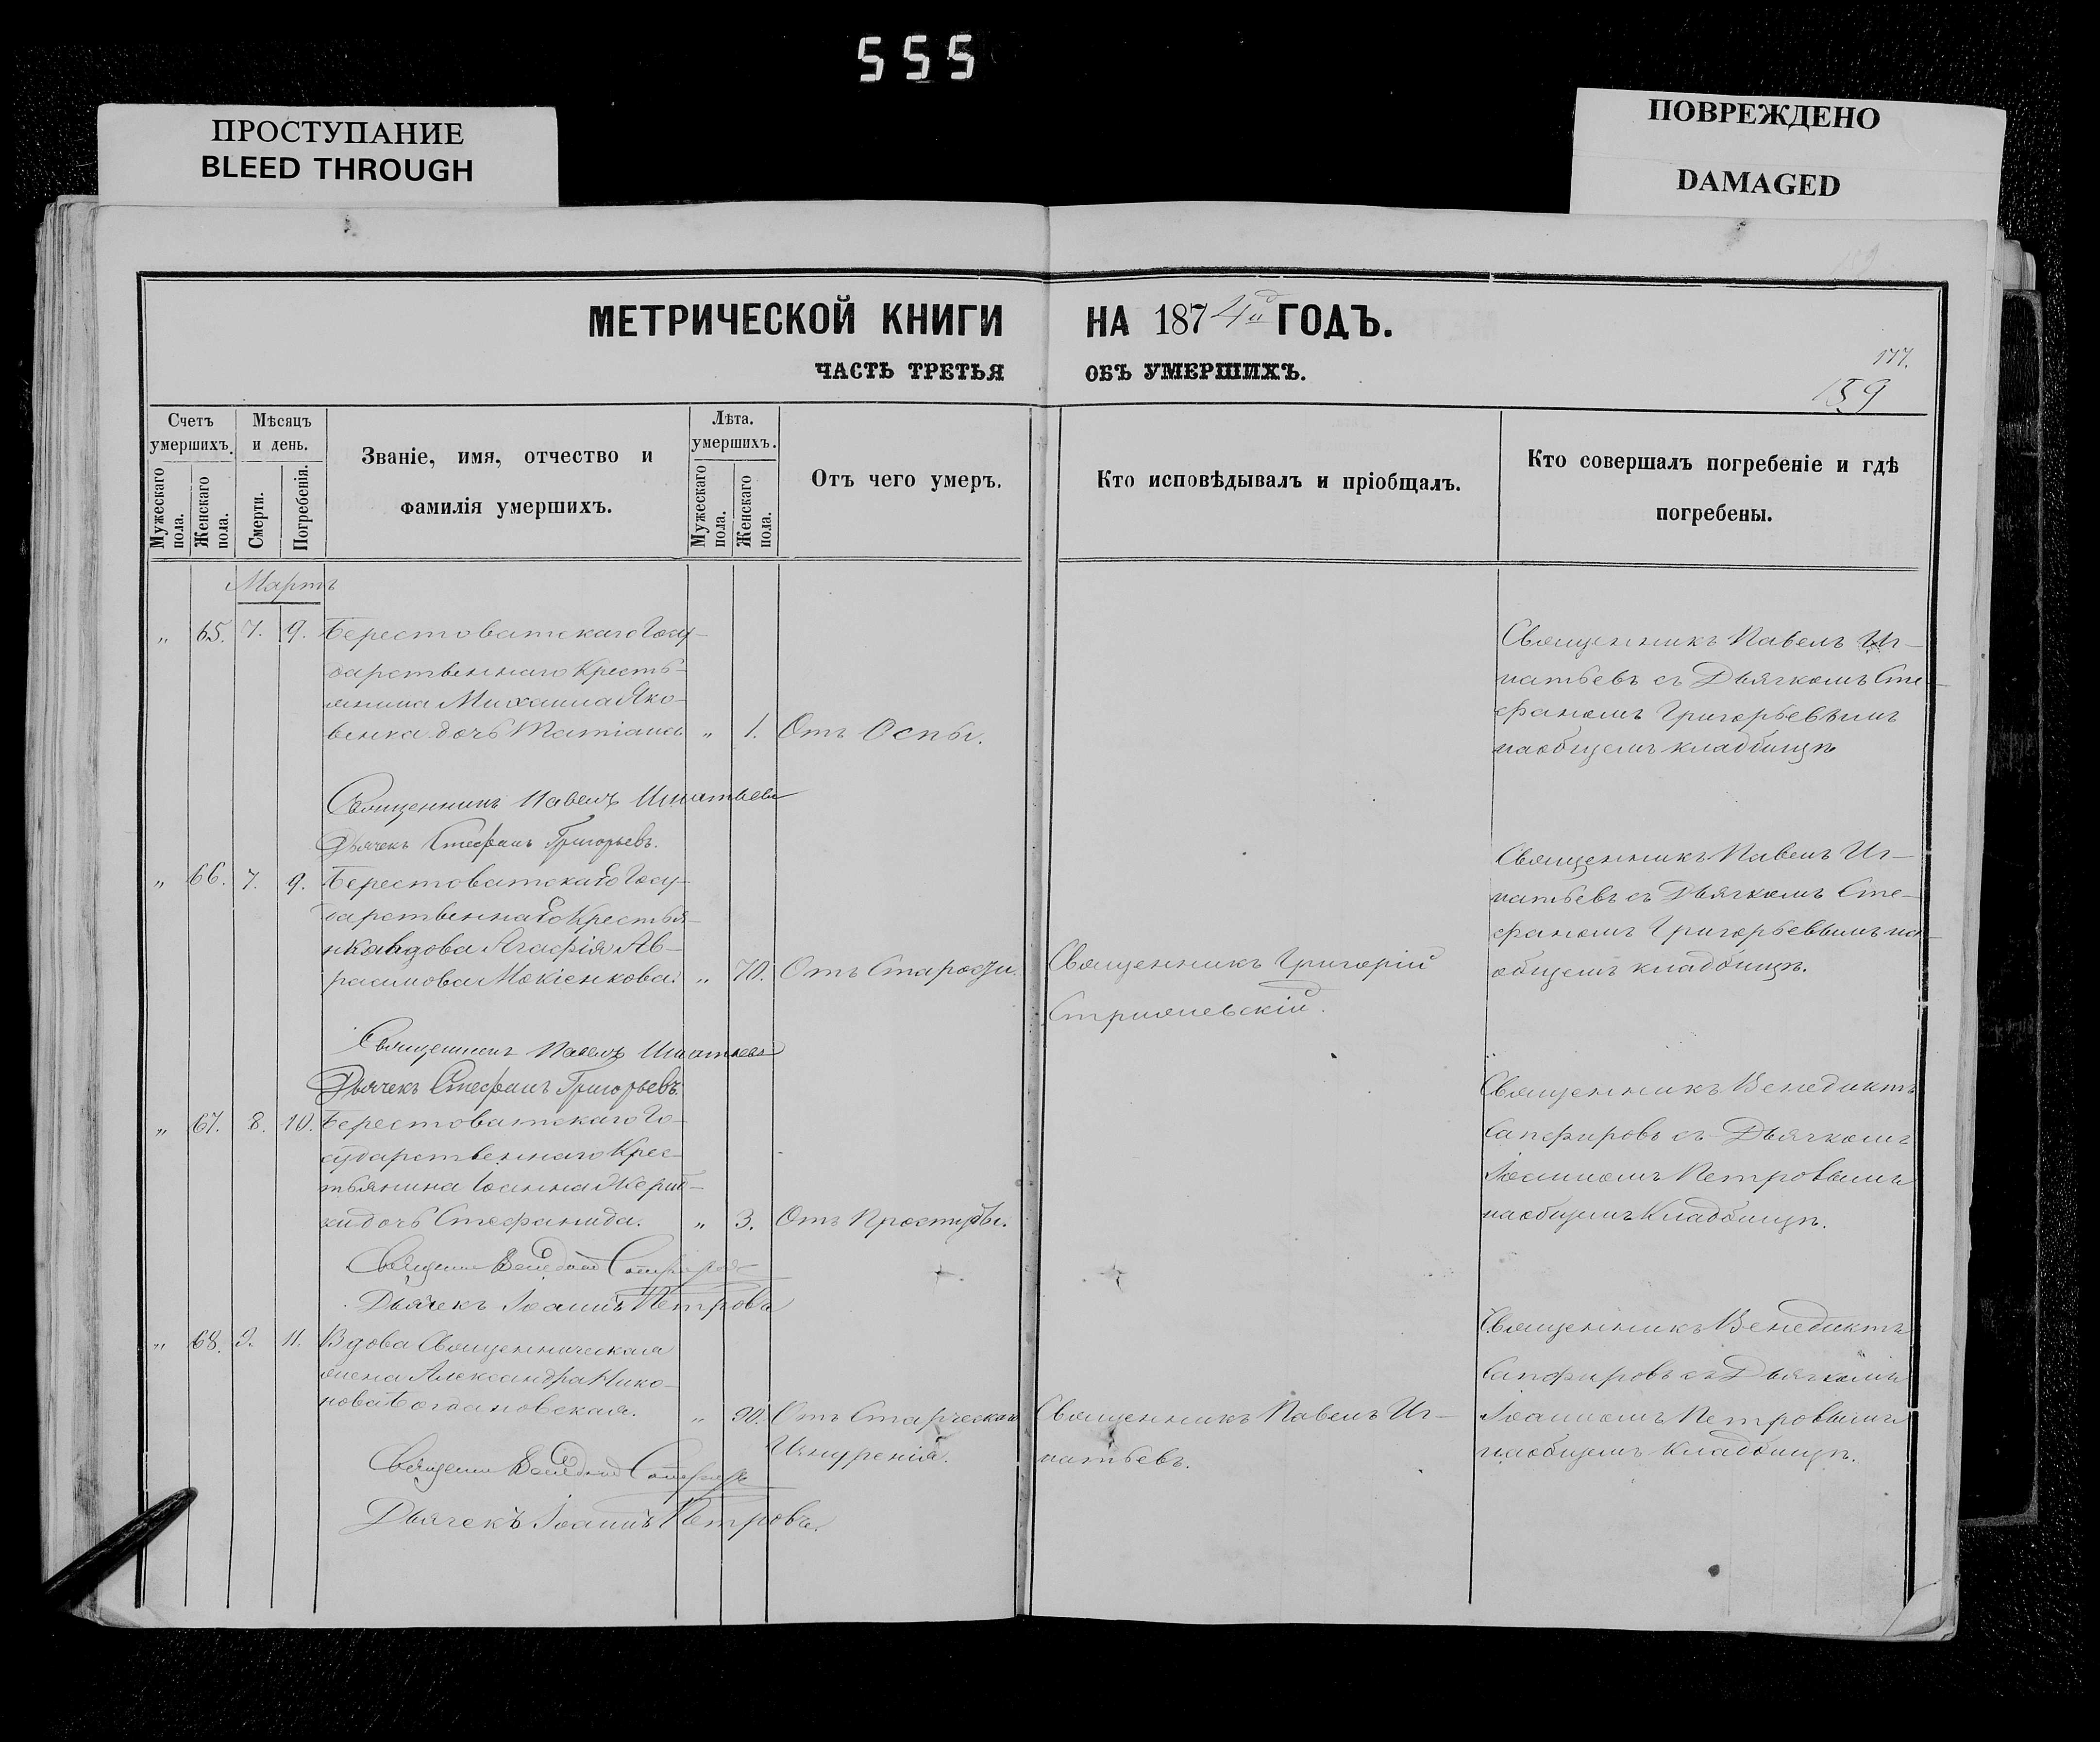 555
ПРОСТУПАНИЕ
BLEED THROUGH
ПОВРЕЖДЕНО
DAMAGED
МЕТРИЧЕСКОЙ КНИГИ НА 1874й ГОДЪ.
ЧАСТЬ ТРЕТЬЯ ОБЪ УМЕРШИХЪ.
177.
159
Счетъ умершихъ.
Мужескаго пола.
Женскаго пола.
Мѣсяцъ и день.
Смерти.
Погребенія.
Званіе, имя, отчество и
фамилія умершихъ.
Лѣта. умершихъ.
Мужескаго пола.
Женскаго пола.
Отъ чего умеръ.
Кто исповѣдывалъ и пріобщалъ.
Кто совершалъ погребеніе и гдѣ
погребены.
Мартъ
„ 65. 7. 9. Берестоватскаго Госу-
дарственнаго Кресть-
янина Михаила Яко-
венка дочь Татіана „ 1. Отъ Оспы.
Священникъ Павелъ Иг-
натьевъ съ Дьячкомъ Сте-
фаномъ Григорьевымъ
на общемъ кладбищѣ
Священникъ Павелъ Игнатьевъ
Дьячекъ Стефанъ Григорьевъ.
„ 66. 7. 9. Берестоватскаго Госу-
дарственнаго Крестья-
нка вдова Агафія Ав-
раамова Мокіенкова. „ 70. Отъ Старости.
Священникъ Григорій
Священникъ Павелъ Иг-
натьевъ съ Дьячкомъ Сте-
фаномъ Григорьевымъ на
общемъ кладбищѣ.
Священникъ Павелъ Игнатьевъ
Дьячекъ Стефанъ Григорьевъ.
„ 67. 8. 10. Берестоватскаго Го-
сударственнаго Крес-
тьянина Іоанна
дочь Стефанида. „ 3. Отъ Простуды.
Священникъ Венедиктъ
Сапфировъ съ Дьячкомъ
Іоанномъ Петровымъ
на общемъ Кладбищѣ.
Священникъ Венедиктъ Сапфировъ
Дьячекъ Іоаннъ Петровъ
„ 68. 9. 11. Вдова Священническая
жена Александра Нико-
нова Богдановская. „ 90. Отъ Старческаго
Изнуренія.
Священникъ Павелъ Иг-
натьевъ.
Священникъ Венедиктъ
Сапфировъ съ Дьячкомъ
Іоанномъ Петровымъ
на общемъ Кладбищѣ.
Священникъ Венедиктъ Сапфировъ
Дьячекъ Іоаннъ Петровъ.